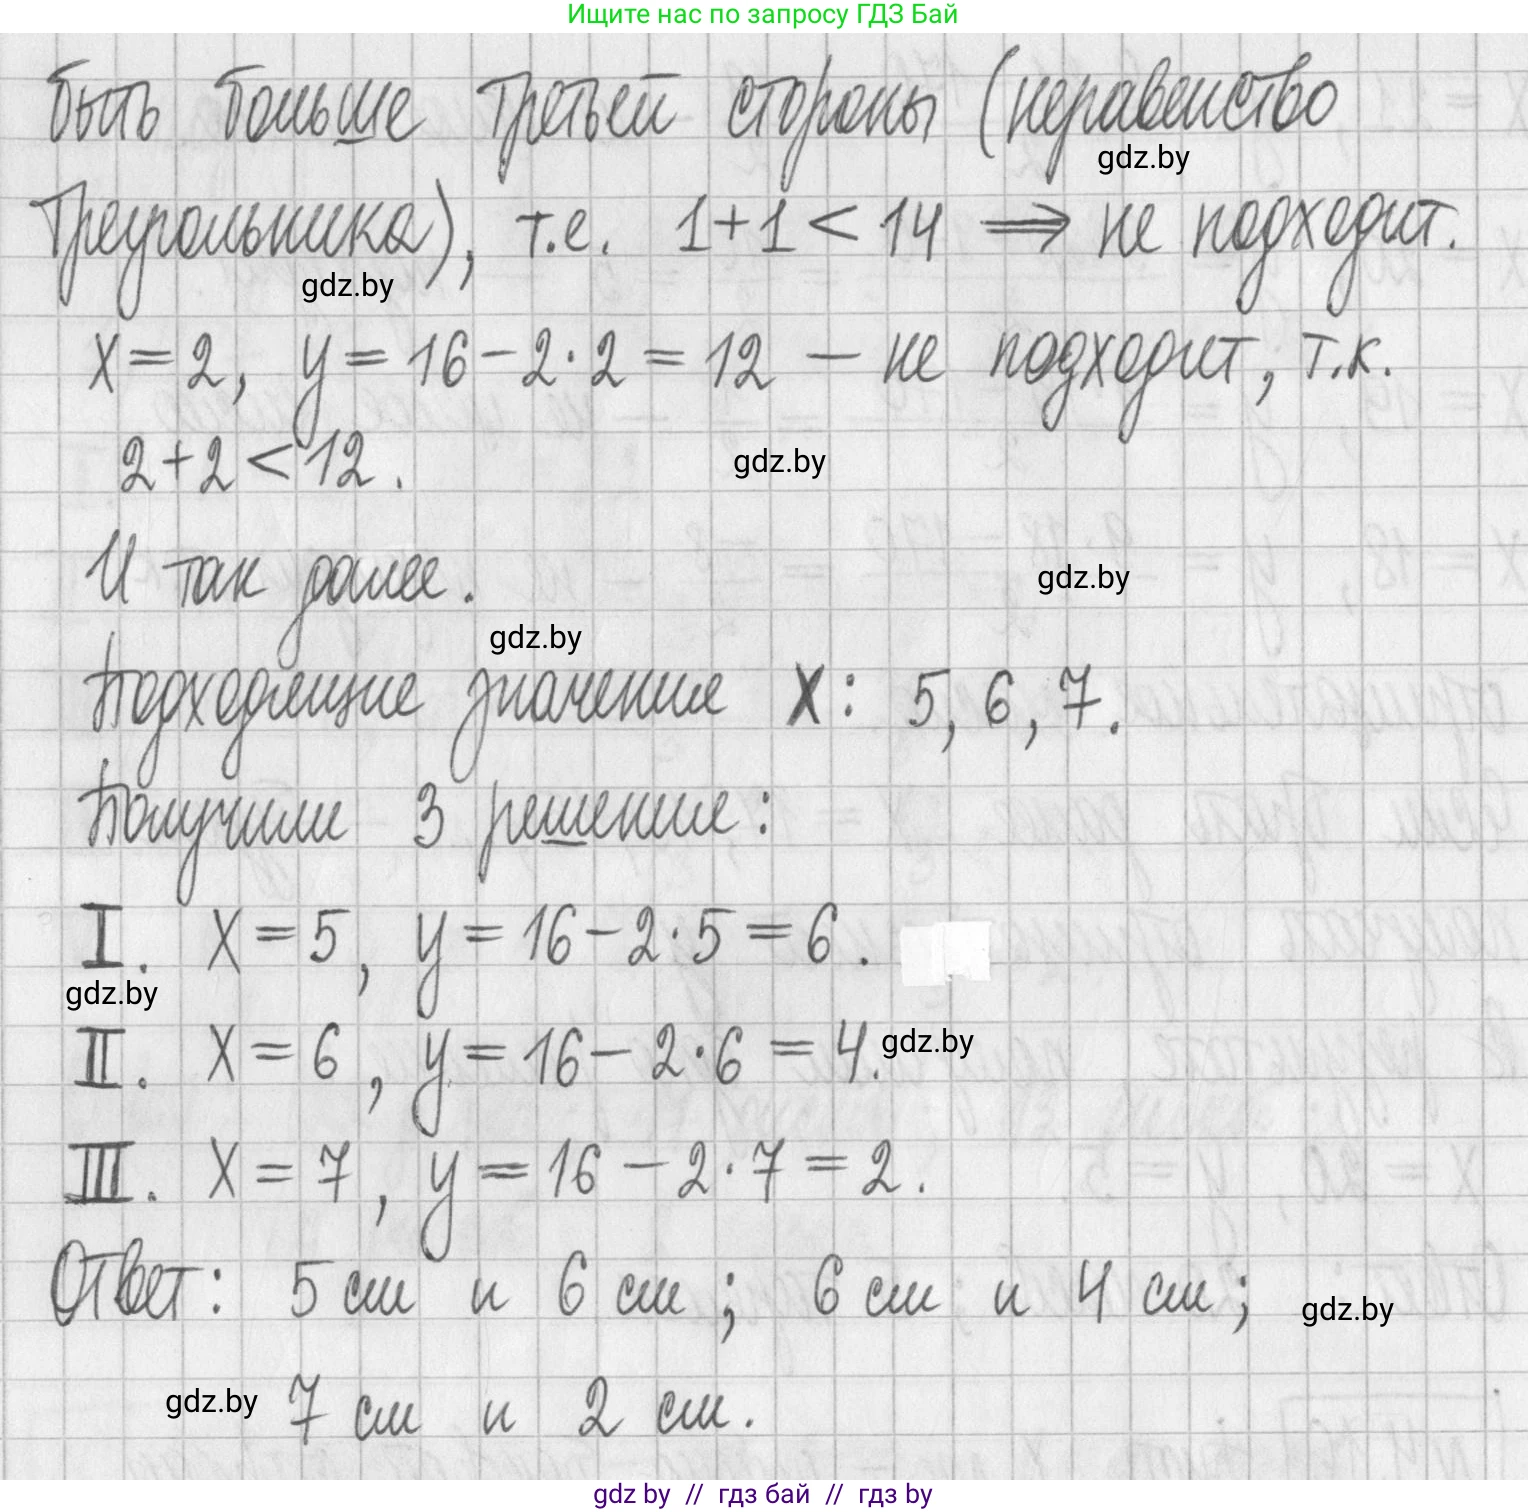 Ищите нас по запросу ГДЗ Бай
быть больше третьей стороны (неравенство
gdz.by
треугольника), т.е. 1+1 < 14 ⟹ не подходит.
gdz.by
x = 2, y = 16 - 2·2 = 12 — не подходит, т.к.
2+2 < 12.
gdz.by
И так далее.
gdz.by
gdz.by
Подходящие значение X: 5, 6, 7.
Получили 3 решение:
I. X = 5, y = 16 - 2·5 = 6.
gdz.by
II. X = 6, y = 16 - 2·6 = 4.
gdz.by
III. X = 7, y = 16 - 2·7 = 2.
Ответ: 5 см и 6 см; 6 см и 4 см;
gdz.by
gdz.by
7 см и 2 см.
gdz by // гдз бай // гдз by